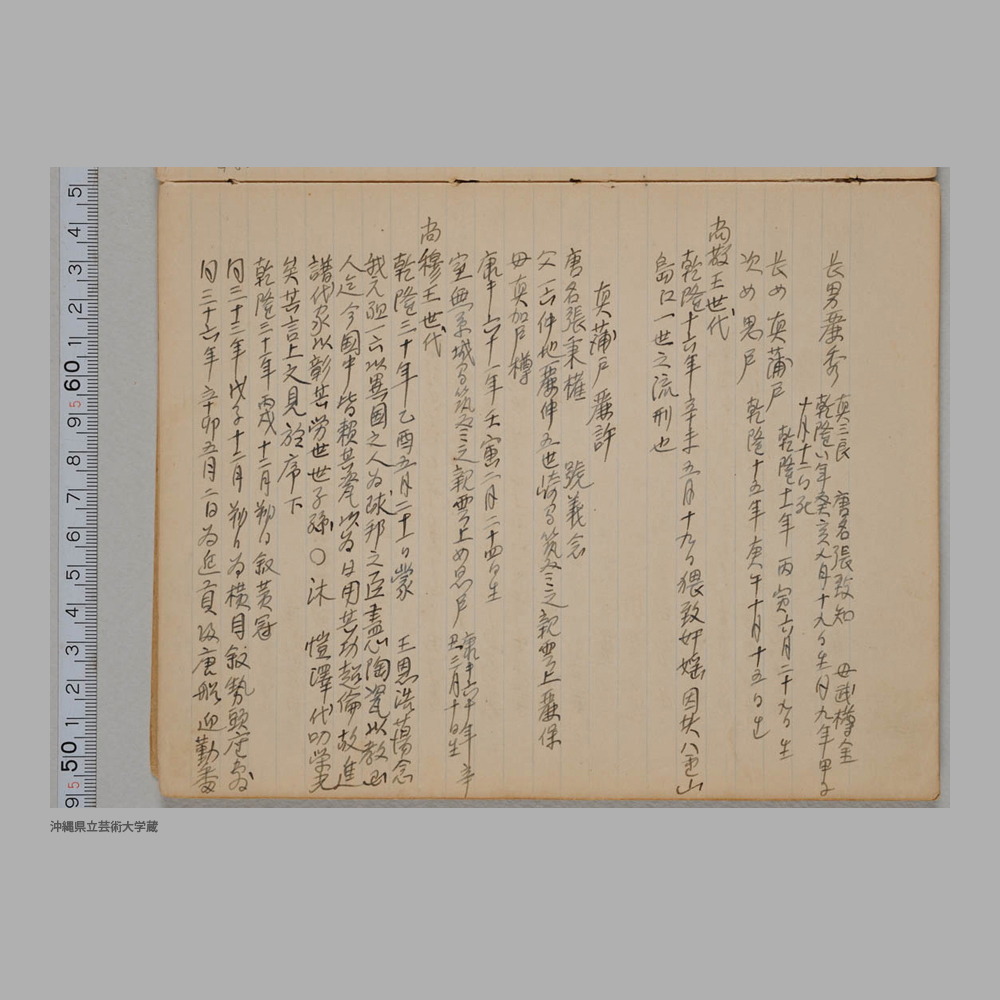 長男廉秀 真三良 唐名張致知 母武樽金
乾隆八年癸亥 月十九日生同九年甲子
十月十二日死
長女真蒲戸 乾隆十一年丙寅六月二十九日生
次女思戸 乾隆十五年庚午十月十五日生
尚敬王世代
乾隆十六年辛未五月十九日猥致奸婬因共八重山
島江一世之流刑也
真蒲戸廉許
唐名張秉權 號義念
父一六仲地廉伸五世崎間筑登之親雲上廉保
母真加戸樽
康熙六十一年壬寅二月二十四日生
室無系城間筑登之親雲上女思戸 康熙六十年辛
丑三月十日生
尚穆王世代
乾隆三十年乙酉五月二十日蒙 王恩浩蕩念
我元祖一六以異国之人為球邦之臣盡心陶瓷以教
人迄今國中皆頼其瓷以為日用其功超倫故進
譜代家以彰其労世世子孫〇沐 愷澤代叨栄光
矣其言上之見於序下
乾隆三十一年丙戌十二月 日叙黄冠
同三十三年戊子十二月 日為横目叙勢頭座敷
同三十六年辛卯五月二日為進貢 唐船迎勤
9 5 50 1 2 3 4 5 6 7 8 9 5 60 1 2 3 4 5
沖縄県立芸術大学蔵